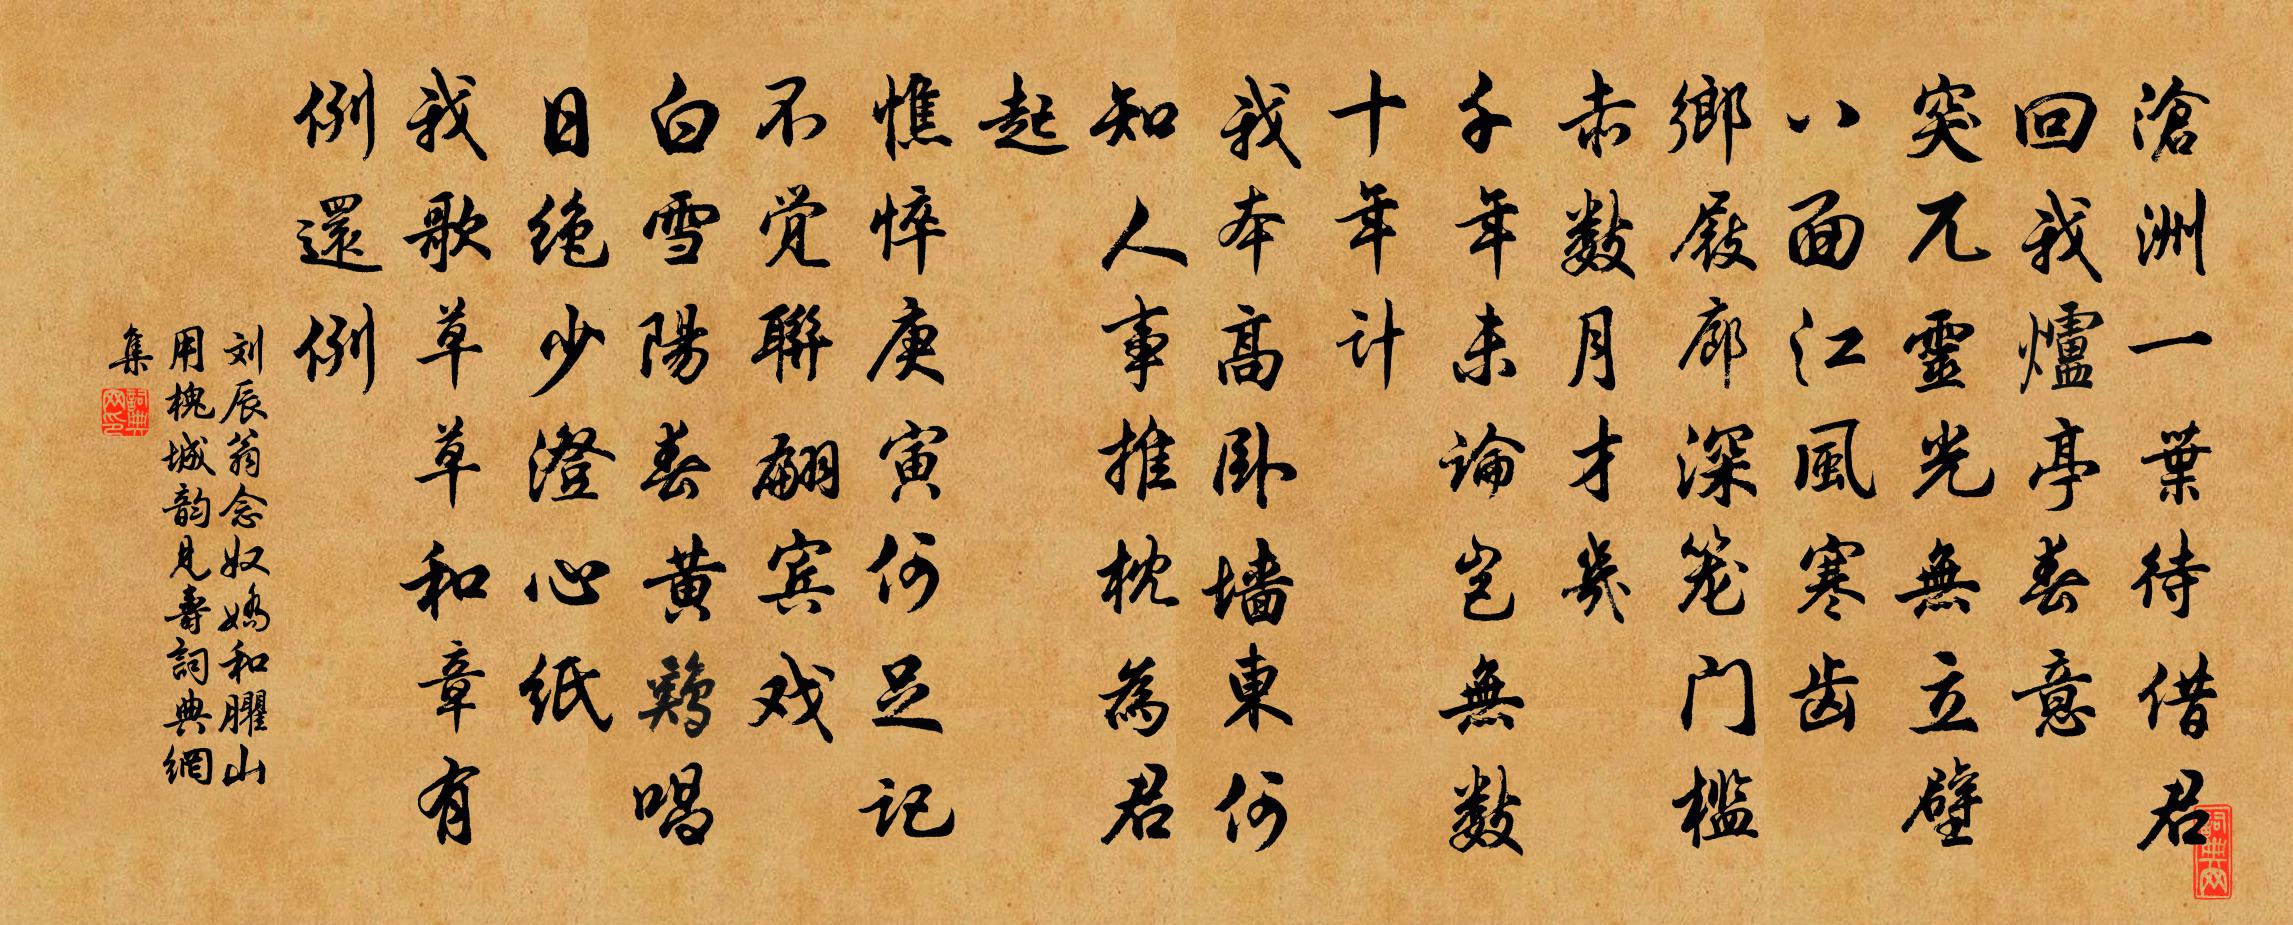 滄洲一葉待借君
回我爐亭春意
突兀靈光無立壁
八面江風寒齿
鄉屐廊深笼门槛
赤数月才幾
千年未論岂無数
十年计
我本高卧墙東何
知人事推枕為君
起
憔悴庚寅何足记
不觉聯翩宾戏
白雪陽春黄鷄唱
日绝少澄心纸
我歌草草和章有
例還例
刘辰翁念奴嬌和臞山
用槐城韵見壽詞典網
集
詞典网印
詞典网